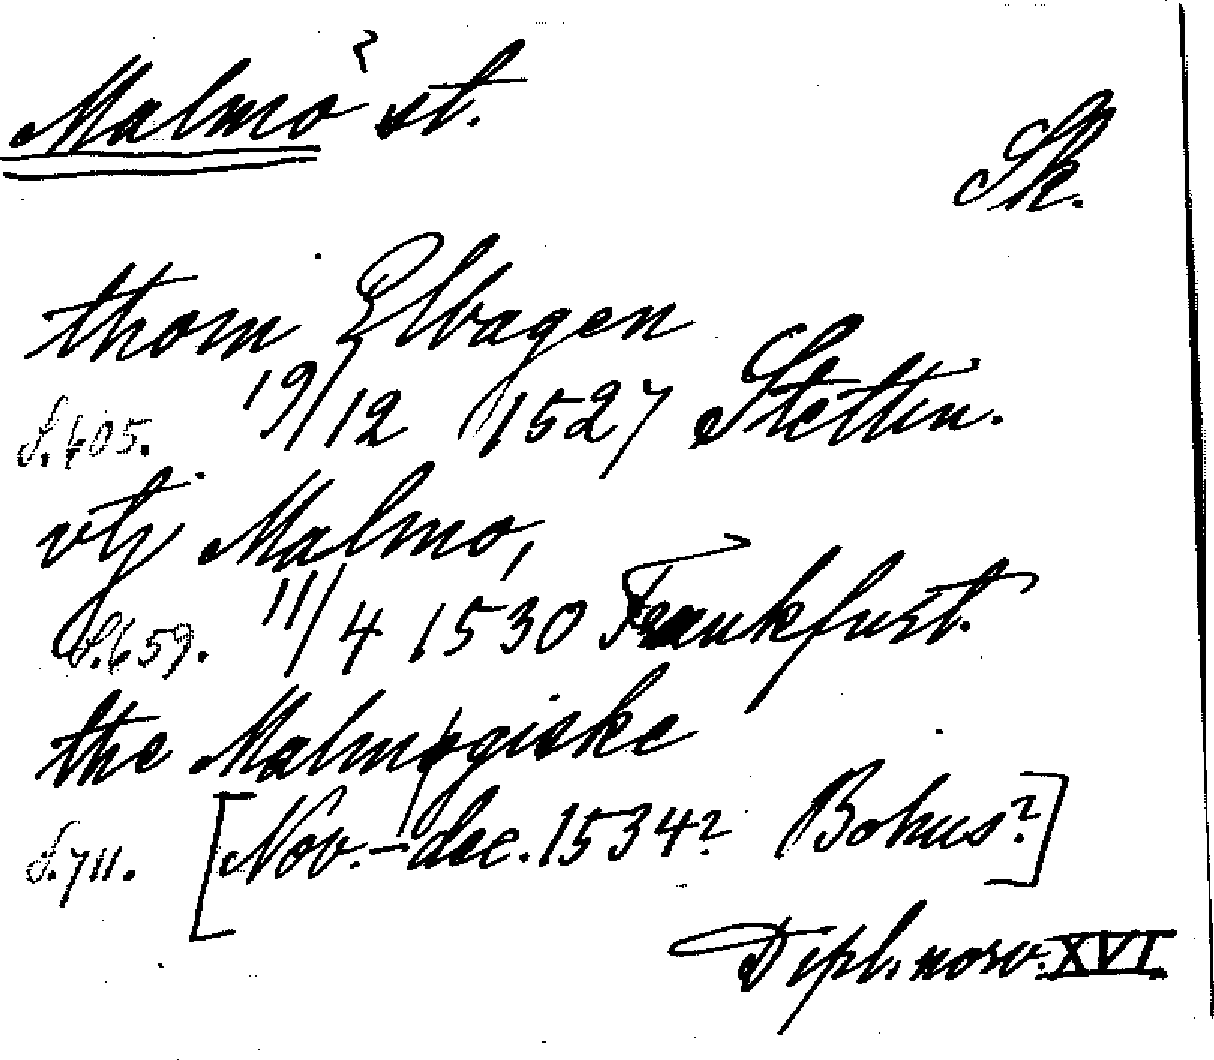 Malmö st.
Sk.
thom Elbagen
S. 405. 19/12 1527 Stettin.
vtj Malmo,
S. 659. 11/4 1530 Frankfurt.
the Malmøgiske
S. 711. [Nov.–dec. 1534? Bohus?]
Dipl. norv. XVI.